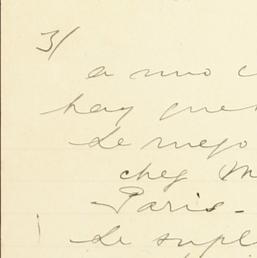 3/
a uno
hay que
de mejo
chez M
Paris-
de supl